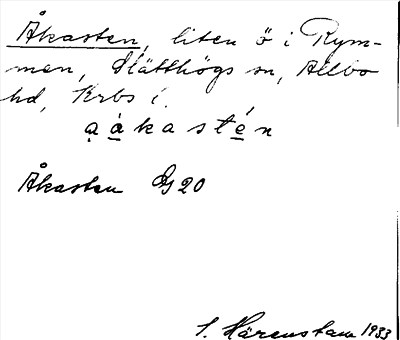 Åkasten, liten ö i Rym-
men, Slätthögs sn, Allbo
hd, Krbs l.
ạákastén
Åkasten EG 20
S. Härenstam 1933